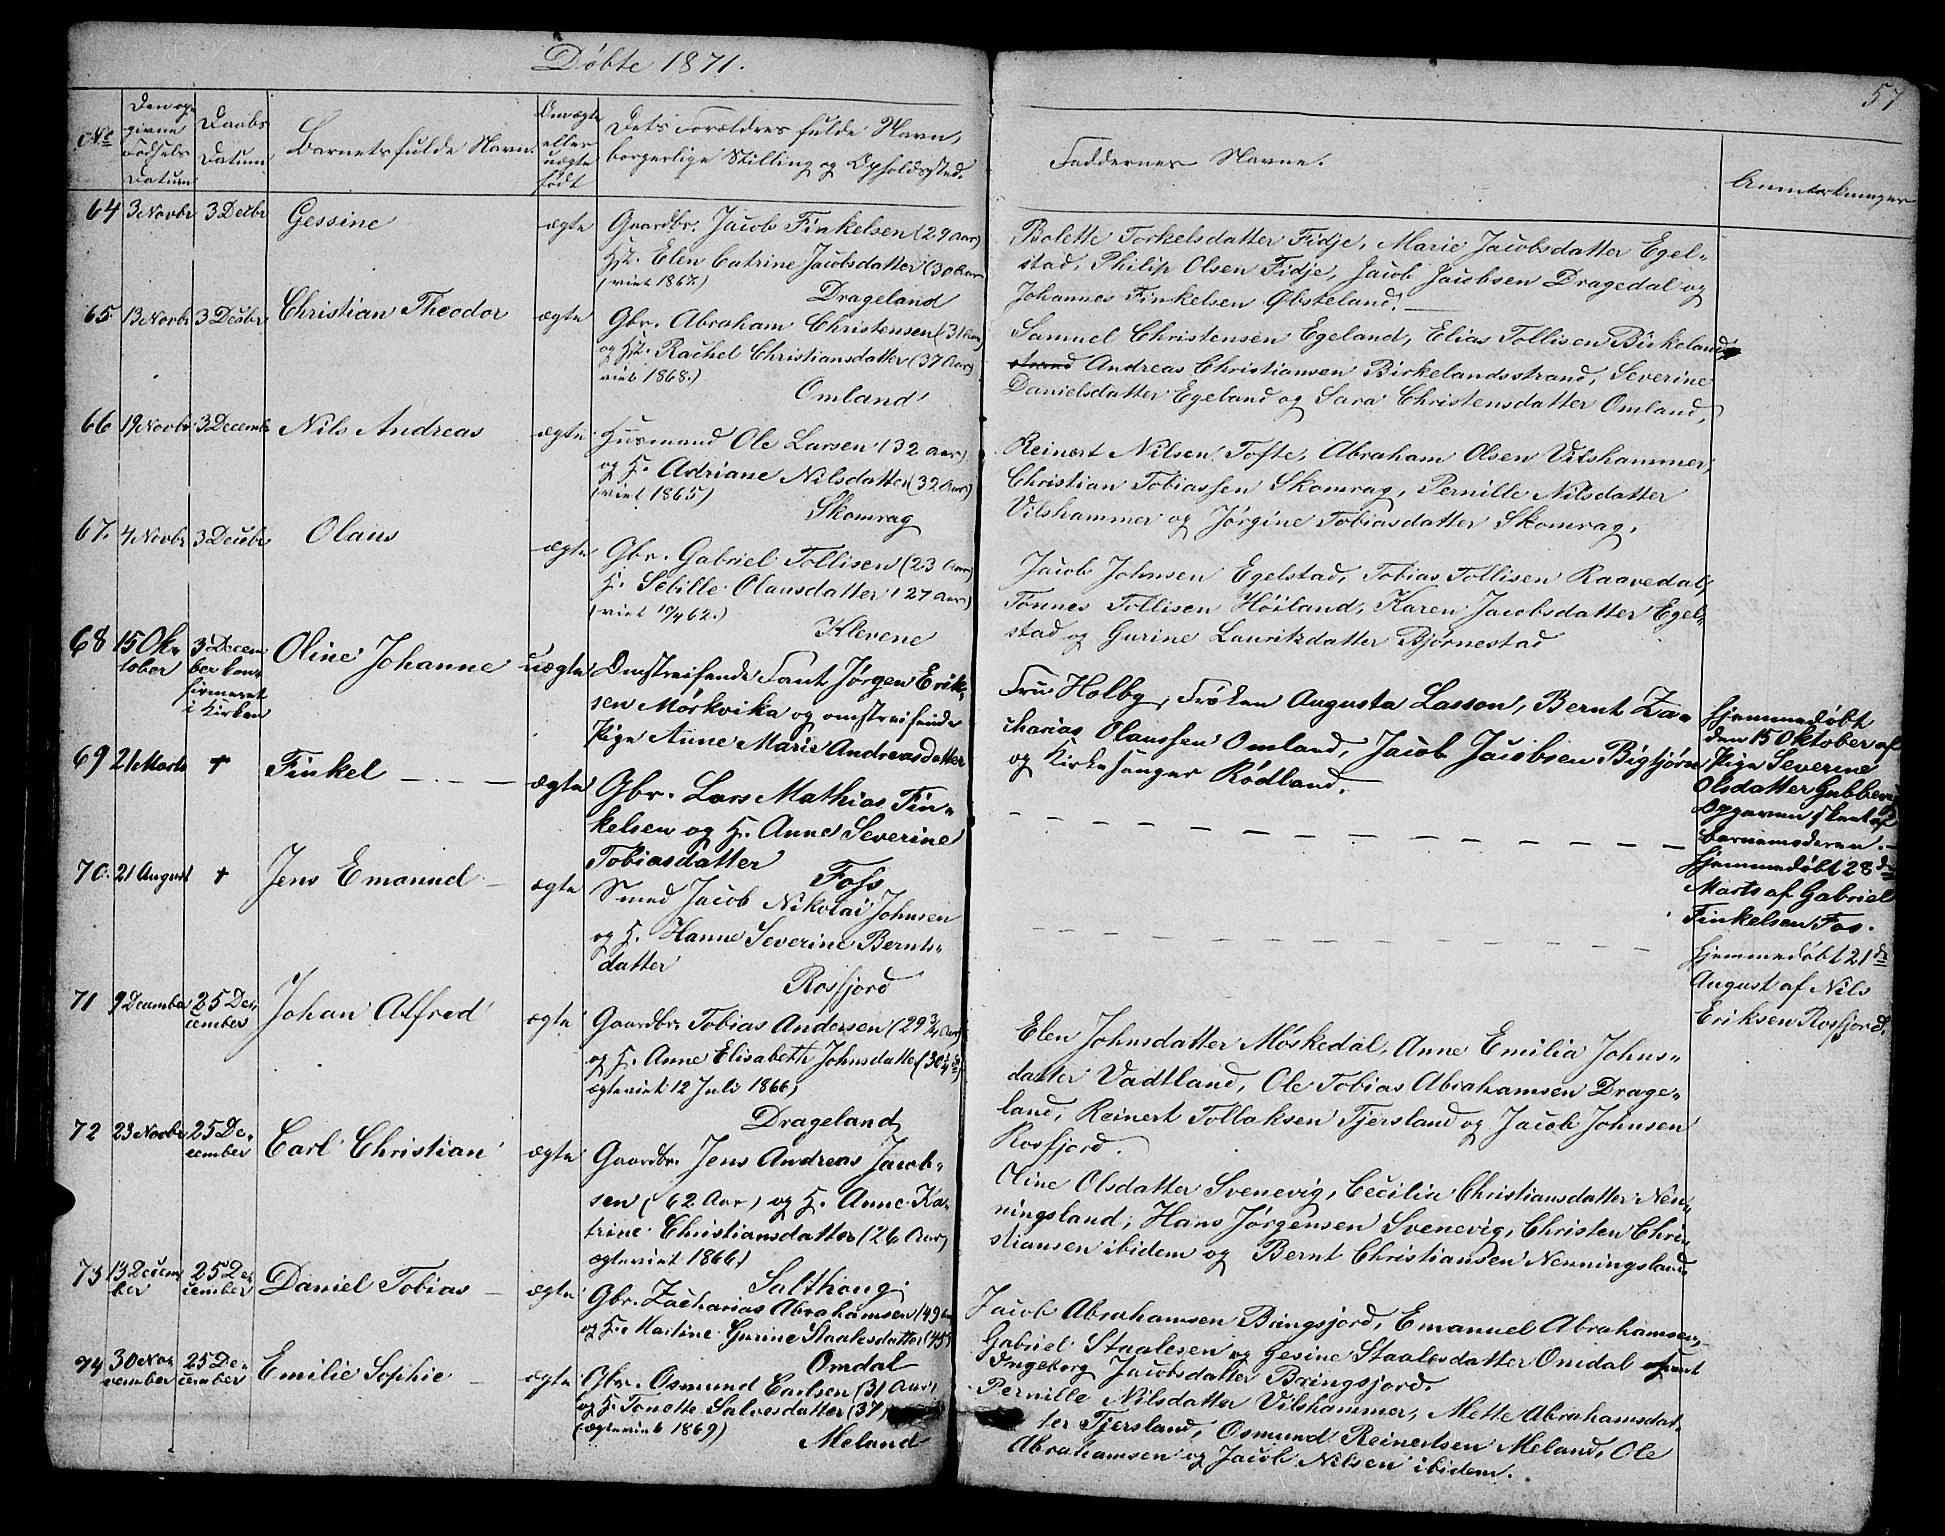 Døbte 1871.
57
No
Den op-
givne
Fødsels
Datum
Daabs
Datum
Barnets fulde Navn.
Om ægte
eller
uægte
født
Dets Forældres fulde Navn,
borgerlige Stilling og Opholdssted.
Faddernes Navne.
Anmærkninger
64 3 Novbr 3 Decbr Gessine ægte Gaardbr. Jacob Finkelsen (29 Aar)
H. Elen Catrine Jacobsdatter (30 Aar
(viet 1867.)
Drageland
Bolette Torkelsdatter Fidje, Marie Jacobsdatter Egel-
stad, Philip Olsen Fidje, Jacob Jacobsen Dragedal og
Johannes Finkelsen Øbsteland.
65 13 Novbr 3 Decbr Christian Theodor ægte Gbr. Abraham Christensen (31 Aar)
og H. Rachel Christiansdatter (37 Aar)
viet 1868.)
Omland
Samuel Christensen Egeland, Elias Tollisen Birkeland,
strand Andreas Christiansen Birkelandsstrand, Severine
Danielsdatter Egeland og Sara Christensdatter Omland,
66 19 Novbr 3 Decemb Nils Andreas ægte Husmand Ole Larsen (32 Aar)
og H. Adriane Nilsdatter (32 Aar)
(viet 1865)
Skomrag
Reinert Nilsen Tofte, Abraham Olsen Vilshammer,
Christian Tobiassen Skomrag, Pernille Nilsdatter
Vilshammer og Jørgine Tobiasdatter Skomrag.
67. 4 Novbr 3 Decbr Olaus ægte Gbr. Gabriel Tollisen (23 Aar)
H. Sebille Olausdatter (27 Aar)
(viet 10/4 62.)
Klevene
Jacob Johnsen Egelstad, Tobias Tollisen Raavedal,
Tønnes Tollisen Høiland, Karen Jacobsdatter Egel-
stad og Gurine Lauritzdatter Bjørnestad
68 15 Ok-
tober
3 Decem-
ber kon-
firmeret
i Kirken
Oline Johanne uægte Omstreifende Fant Jørgen Erik-
sen Mørkvika og omstreifende
Pige Anne Marie Andreasdatter
Fru Holby, Frøken Augusta Lasson, Bernt Za-
charias Olaussen Omland, Jacob Jacobsen Bigtjørn
og Kirkesanger Rødland.
Hjemmedøbt
den 15 Oktober af
Pige Severine
Olsdatter Gabbevig
Opgaven skeet af
barnemoderen.
69 21 Marts + Finkel ægte Gbr. Lars Mathias Fin-
kelsen og H. Anne Severine
Tobiasdatter
Foss
Hjemmedøbt 28de
Marts af Gabriel
Finkelsen Fos.
70. 21 August + Jens Emanuel ægte Smed Jacob Nikolai Johnsen
og H. Hanne Severine Bernts-
datter
Rosfjord
Hjemmedøbt 21de
August af Nils
Eriksen Rosfjord.
71 9 December 25 De-
cember
Johan Alfred ægte Gaardbr. Tobias Andersen (29 3/4 Aar)
og H. Anne Elisabeth Johnsdatter (30 1/4
ægteviet 12 Juli 1866)
Drageland
Elen Johnsdatter Møskedal, Anne Emilia Johns-
datter Vadtland, Ole Tobias Abrahamsen Drage-
land, Reinert Tollaksen Tjersland og Jacob Johnsen
Rosfjord.
72 23 Novbr 25 De-
cember
Carl Christian ægte Gaardbr. Jens Andreas Jacob-
sen (62 Aar) og H. Anne Ka-
trine Christiansdatter (26 Aar)
ægteviet 1866)
Salthoug
Oline Olsdatter Svenevig, Cecilia Christiansdatter Nen-
ningsland, Hans Jørgensen Svenevig, Christen Chri-
stiansen ibidem og Bernt Christiansen Nenningsland.
73 13 Decem-
ber
25 De-
cember
Daniel Tobias ægte Gbr. Zacharias Abrahamsen (49
og H. Martine Gurine Staalesdatter (45)
Omdal
Jacob Abrahamsen Bringsjord, Emanuel Abrahamsen,
Gabriel Staalesen og Gesine Staalesdatter Omdal samt
Ingeborg Jacobsdatter Bringsjord.
74 30 No-
vember
25 De-
cember
Emilie Sophie ægte Gbr. Osmund Carlsen (31 Aar)
og H. Tonette Salvesdatter (37)
(ægteviet 1869)
Meland
Pernille Nilsdatter Vilshammer, Mette Abrahamsdat-
ter Tjersland, Osmund Reinertsen Meland, Ole
Abrahamsen og Jacob Nilsen ibidem.